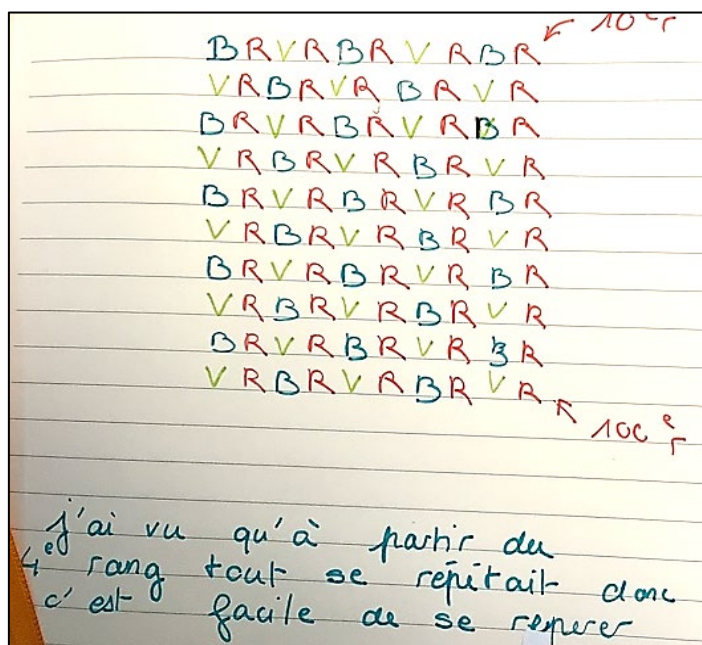 10e r
B R V R B R V R B R
V R B R V R B R V R
B R V R B R V R B R
V R B R V R B R V R
B R V R B R V R B R
V R B R V R B R V R
B R V R B R V R B R
V R B R V R B R V R
B R V R B R V R B R
V R B R V R B R V R
100e r
j'ai vu qu'à partir du
4e rang tout se répétait donc
c'est facile de se reperer